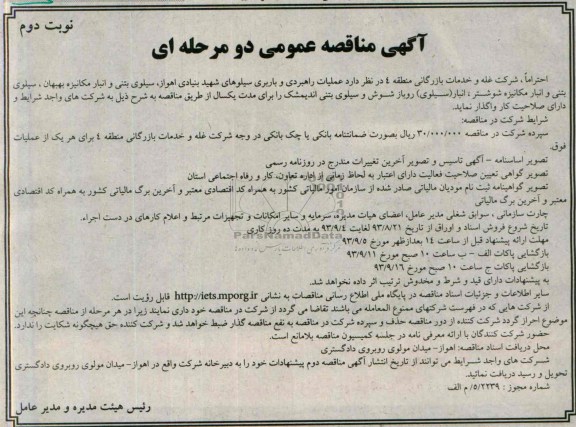 نوبت دوم
آگهی مناقصه عمومی دو مرحله ای
احتراماً ، شرکت غله و خدمات بازرگانی منطقه ٤ در نظر دارد عملیات راهبردی و باربری سیلوهای شهید بنیادی اهواز، سیلوی بتنی و انبار مکانیزه بهبهان ، سیلوی
بتنی و انبار مکانیزه شوشتر ، انبار(سیلوی) روباز شوش و سیلوی بتنی اندیمشک را برای مدت یکسال از طریق مناقصه به شرح ذیل به شرکت های واجد شرایط و
دارای صلاحیت کار واگذار نماید.
شرایط شرکت در مناقصه:
سپرده شرکت در مناقصه ۳۰/۰۰۰/۰۰۰ ریال بصورت ضمانتنامه بانکی یا چک بانکی در وجه شرکت غله و خدمات بازرگانی منطقه ٤ برای هر یک از عملیات
فوق.
تصویر اساسنامه – آگهی تاسیس و تصویر آخرین تغییرات مندرج در روزنامه رسمی
تصویر گواهی تعیین صلاحیت فعالیت دارای اعتبار به لحاظ زمانی از اداره تعاون، کار و رفاه اجتماعی استان
تصویر گواهینامه ثبت نام مودیان مالیاتی صادر شده از سازمان امور مالیاتی کشور به همراه کد اقتصادی معتبر و آخرین برگ مالیاتی کشور به همراه کد اقتصادی
معتبر و آخرین برگ مالیاتی
چارت سازمانی ، سوابق شغلی مدیر عامل، اعضای هیات مدیره، سرمایه و سایر امکانات و تجهیزات مرتبط و اعلام کارهای در دست اجراء.
تاریخ شروع فروش اسناد و اوراق از تاریخ ۹۳/۸/۲۱ لغایت ۹۳/۹/٤ به مدت ده روز کاری
مهلت ارائه پیشنهاد قبل از ساعت ١٤ بعدازظهر مورخ ۹۳/۹/۵
بازگشایی پاکات الف – ب ساعت ۱۰ صبح مورخ ۹۳/۹/۱۱
بازگشایی پاکات ج ساعت ۱۰ صبح مورخ ۹۳/۹/۱۶
به پیشنهادات دارای قید و شرط و مخدوش ترتیب اثر داده نخواهد شد.
سایر اطلاعات و جزئیات اسناد مناقصه در پایگاه ملی اطلاع رسانی مناقصات به نشانی http://iets.mporg.ir قابل رؤیت است.
از شرکت هایی که در فهرست شرکتهای ممنوع المعامله می باشند تقاضا می گردد از شرکت در مناقصه خود داری نمایند زیرا در هر مرحله از مناقصه چنانچه این
موضوع احراز گردد شرکت کننده از دور مناقصه حذف و سپرده شرکت در مناقصه به نفع مناقصه گذار ضبط خواهد شد و شرکت کننده حق هیچگونه شکایت را ندارد.
حضور شرکت کنندگان با ارائه معرفی نامه در جلسه کمیسیون مناقصه بلامانع است.
محل دریافت اسناد مناقصه: اهواز- میدان مولوی روبروی دادگستری
شرکت های واجد شرایط می توانند از تاریخ انتشار آگهی مناقصه دوم پیشنهادات خود را به دبیرخانه شرکت واقع در اهواز- میدان مولوی روبروی دادگستری
تحویل و رسید دریافت نمائید.
شماره مجوز : ۵/۲۲۳۹/م الف
رئیس هیئت مدیره و مدیر عامل
ParsNamadData